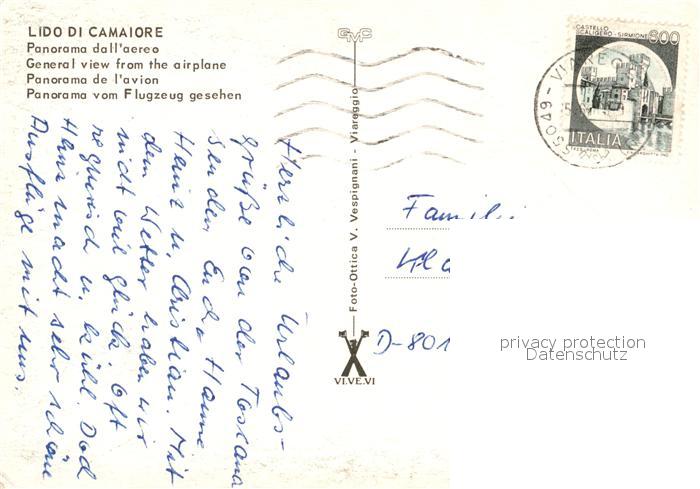 LIDO DI CAMAIORE
Panorama dall'aereo
General view from the airplane
Panorama de l'avion
Panorama vom Flugzeug gesehen
GMC
Foto-Ottica V. Vespignani - Viareggio
VI.VE.VI
CASTELLO
SCALIGERO - SIRMIONE
800
ITALIA
55049 - VIAREGGIO
Herzliche Urlaubs-
grüße von der Toscana
senden Euch Hanne
Heinz u. Christian. Mit
dem Wetter haben wir
nicht viel Glück. Oft
regnerisch u. kühl. Doch
Heinz macht sehr schöne
Ausflüge mit uns.
Famili
D-801
privacy protection
Datenschutz